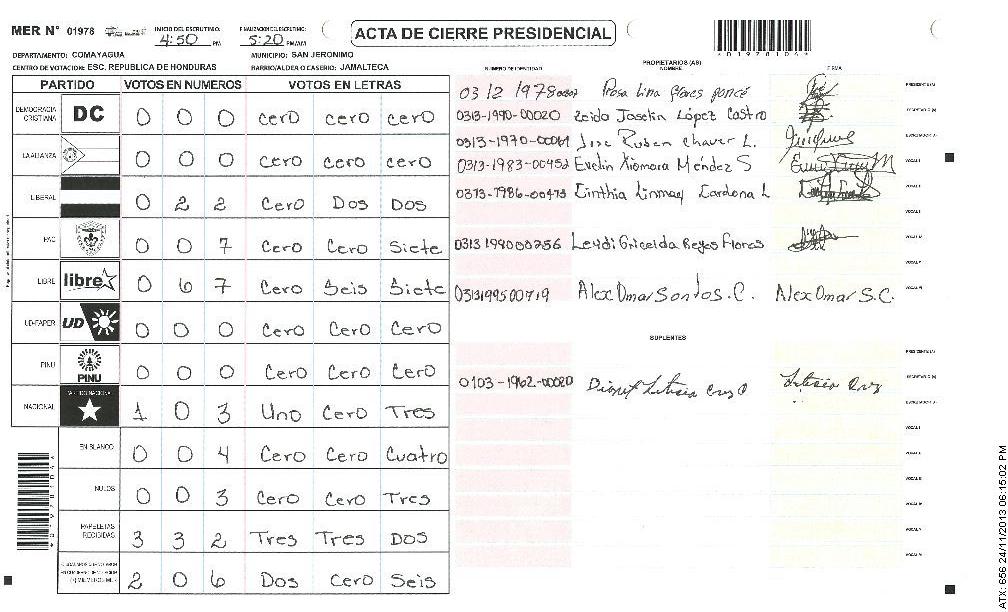 MER N° 01978 INICIO DEL ESCRUTINIO: 4:50 PM FINALIZACION DEL ESCRUTINIO: 5:20 PM/AM
ACTA DE CIERRE PRESIDENCIAL
*01978104*
DEPARTAMENTO: COMAYAGUA MUNICIPIO: SAN JERONIMO
CENTRO DE VOTACION: ESC. REPUBLICA DE HONDURAS BARRIO/ALDEA O CASERIO: JAMALTECA
PARTIDO VOTOS EN NUMEROS VOTOS EN LETRAS
DEMOCRACIA CRISTIANA DC 0 0 0 cero cero cero
LA ALIANZA 0 0 0 cero cero cero
LIBERAL 0 2 2 Cero Dos Dos
PAC 0 0 7 Cero Cero Siete
LIBRE libre 0 6 7 Cero Seis Siete
UD-FAPER UD 0 0 0 Cero Cero Cero
PINU PINU 0 0 0 Cero Cero Cero
NACIONAL PARTIDO NACIONAL 1 0 3 Uno Cero Tres
EN BLANCO 0 0 4 Cero Cero Cuatro
NULOS 0 0 3 Cero Cero Tres
PAPELETAS RECIBIDAS 3 3 2 Tres Tres Dos
2 0 6 Dos Cero Seis
PROPIETARIOS (AS)
NUMERO DE IDENTIDAD NOMBRE FIRMA
03 12 1978 Rosa Lina Flores ponce PRESIDENTE (A)
0313-1990-00020 Zeida Joselin López Castro SECRETARIO (A)
0313-1970-00061 Jose Ruben Chaver L. ESCRUTADOR (A)
0313-1983-00452 Evelin Xiomara Méndez S VOCAL I
0313-1986-00473 Cinthia Linmay Cardona L VOCAL II
VOCAL III
0313 1990 00756 Leydi Griceida Reyes Flores VOCAL IV
VOCAL V
0313199500719 Alex Omar Santos. C. Alex Omar S.C. VOCAL VI
SUPLENTES
PRESIDENTE (A)
0103-1962-00020 Leticia Cruz Leticia Cruz SECRETARIO (A)
ESCRUTADOR (A)
VOCAL I
VOCAL II
VOCAL III
VOCAL IV
VOCAL V
VOCAL VI
ATX: 656 24/11/2013 06:15:02 PM